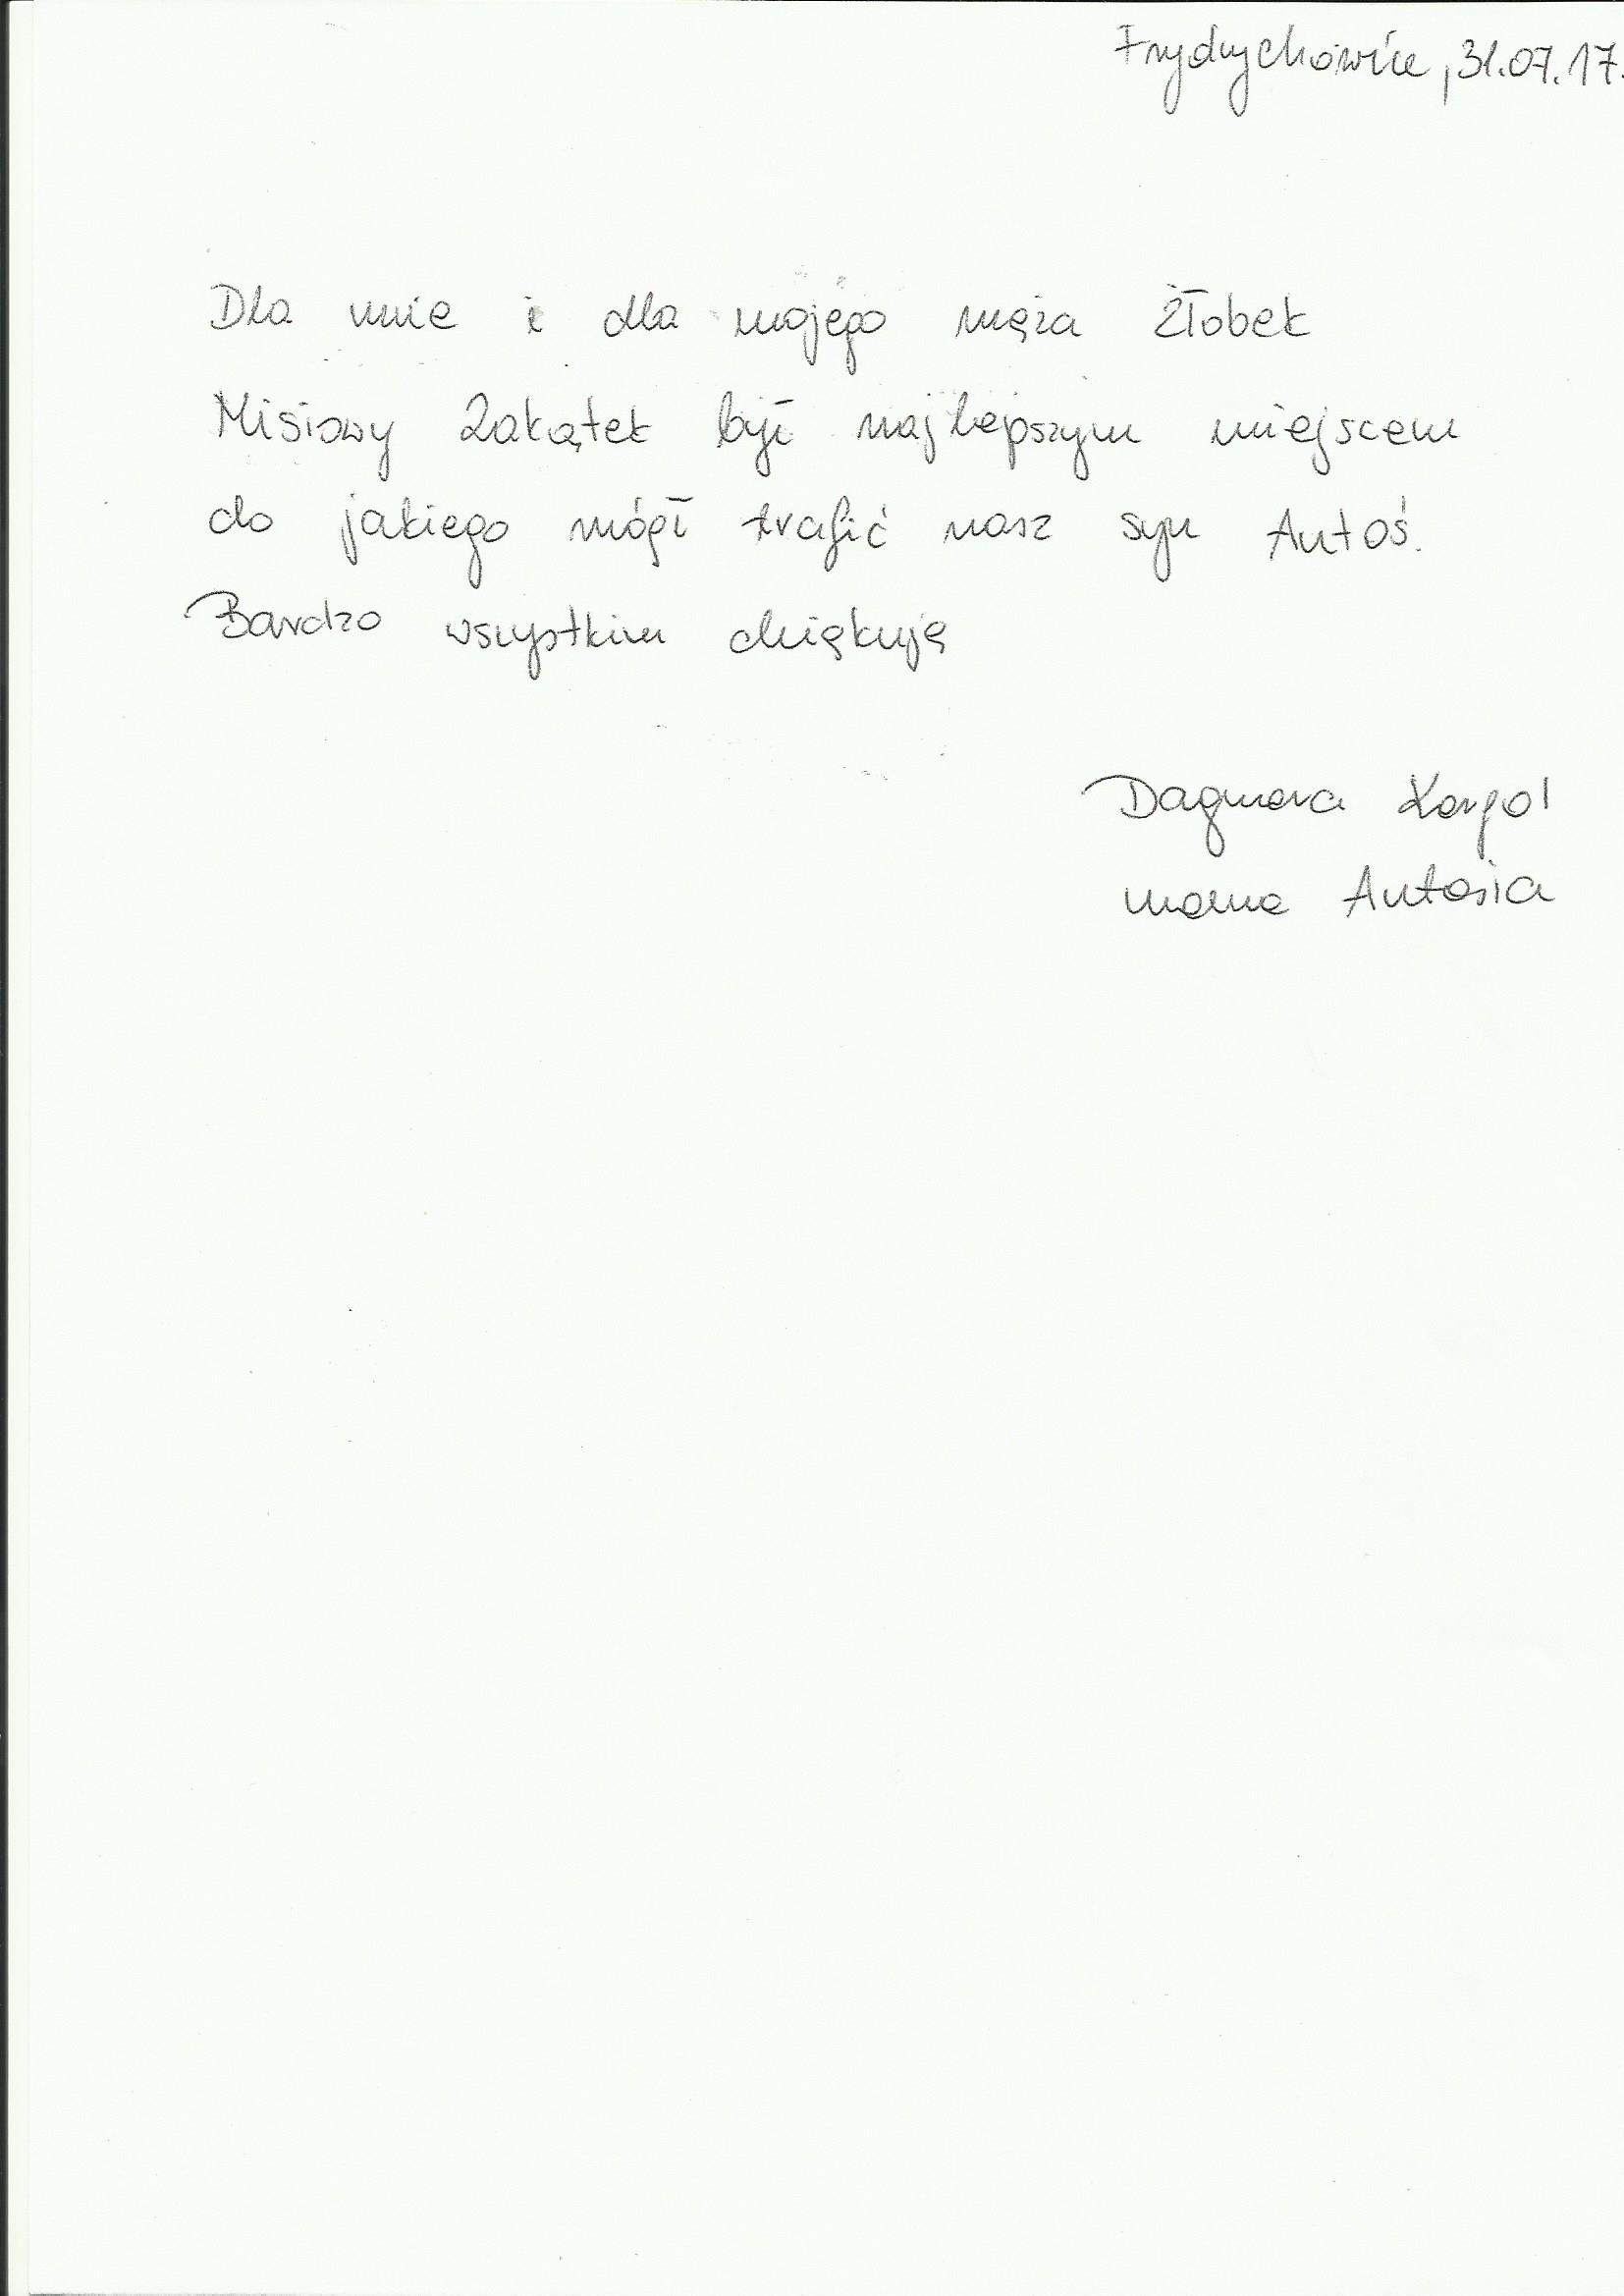 Frydrychowice, 31.07.17.
Dla mnie i dla mojego męża żłobek
Misiowy Zakątek był najlepszym miejscem
do jakiego mógł trafić nasz syn Antoś.
Bardzo wszystkim dziękuję
Dagmara Kargol
mama Antosia